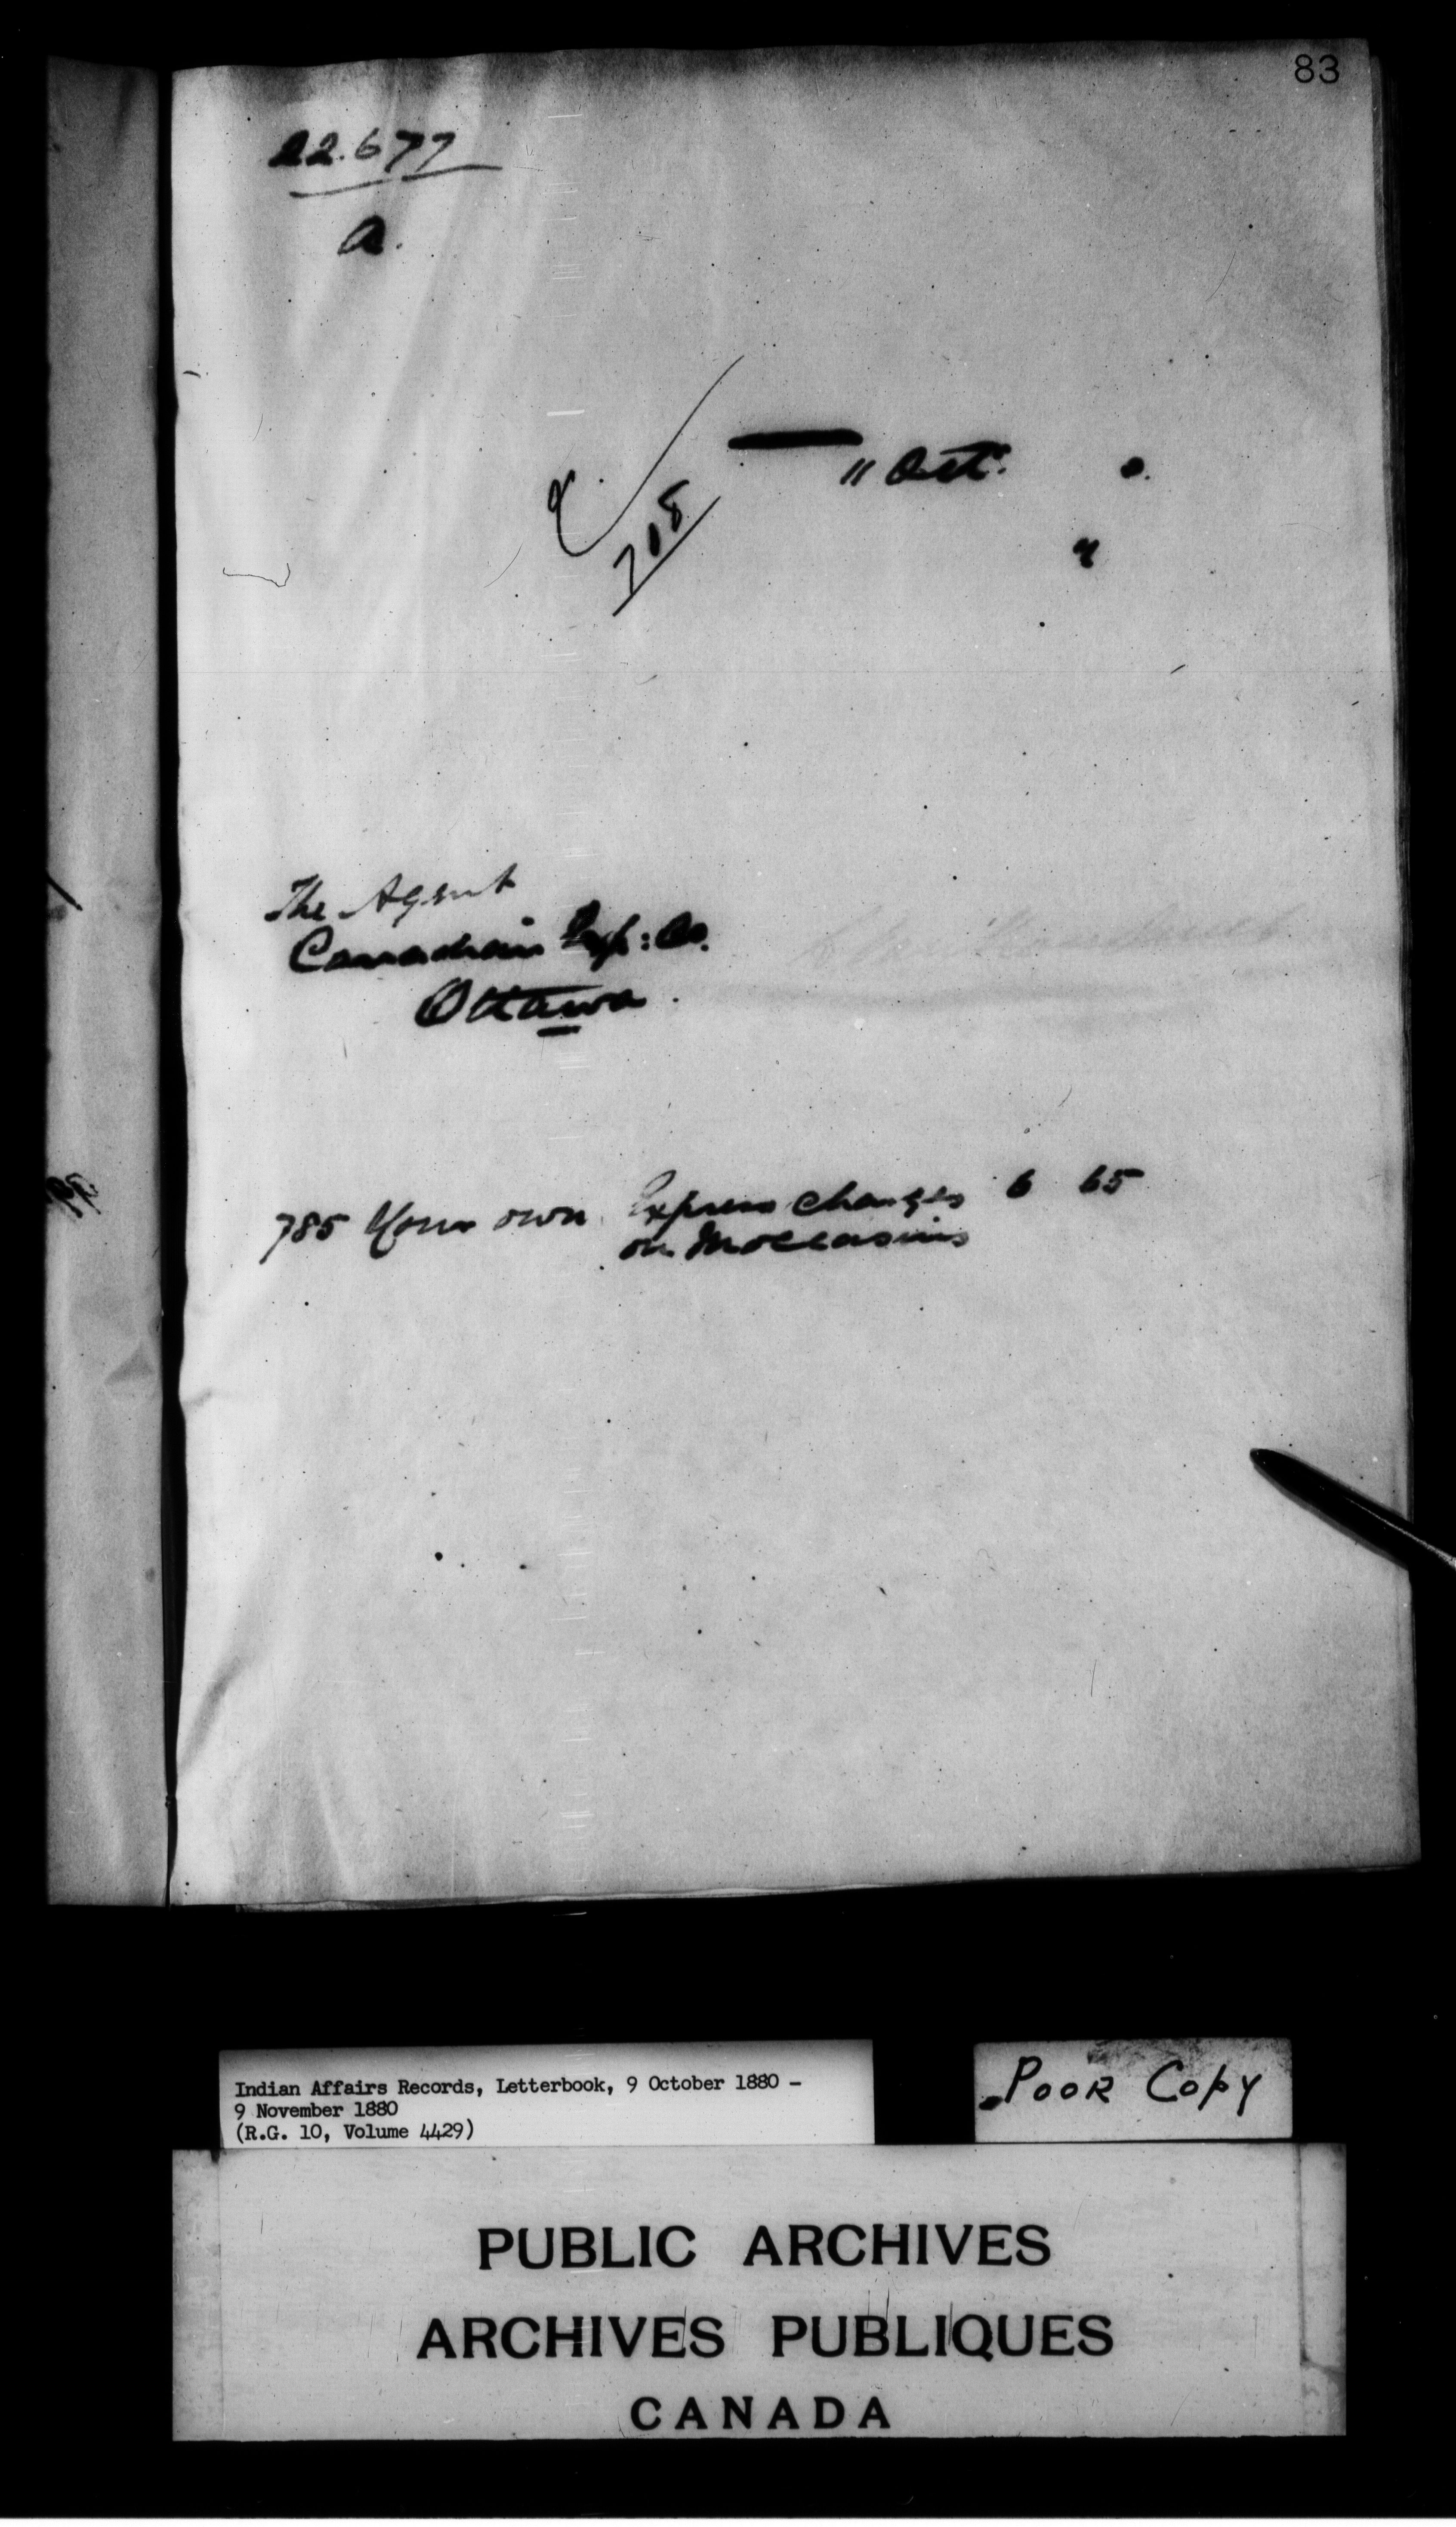 83
22.677
a.
" Oct. 0.
708
The Agent
Canadian Exp: Co.
Ottawa.
785 Your own Express charges 6 65
on Moccasins
Indian Affairs Records, Letterbook, 9 October 1880 -
9 November 1880
(R.G. 10, Volume 4429)
Poor Copy
PUBLIC ARCHIVES
ARCHIVES PUBLIQUES
CANADA